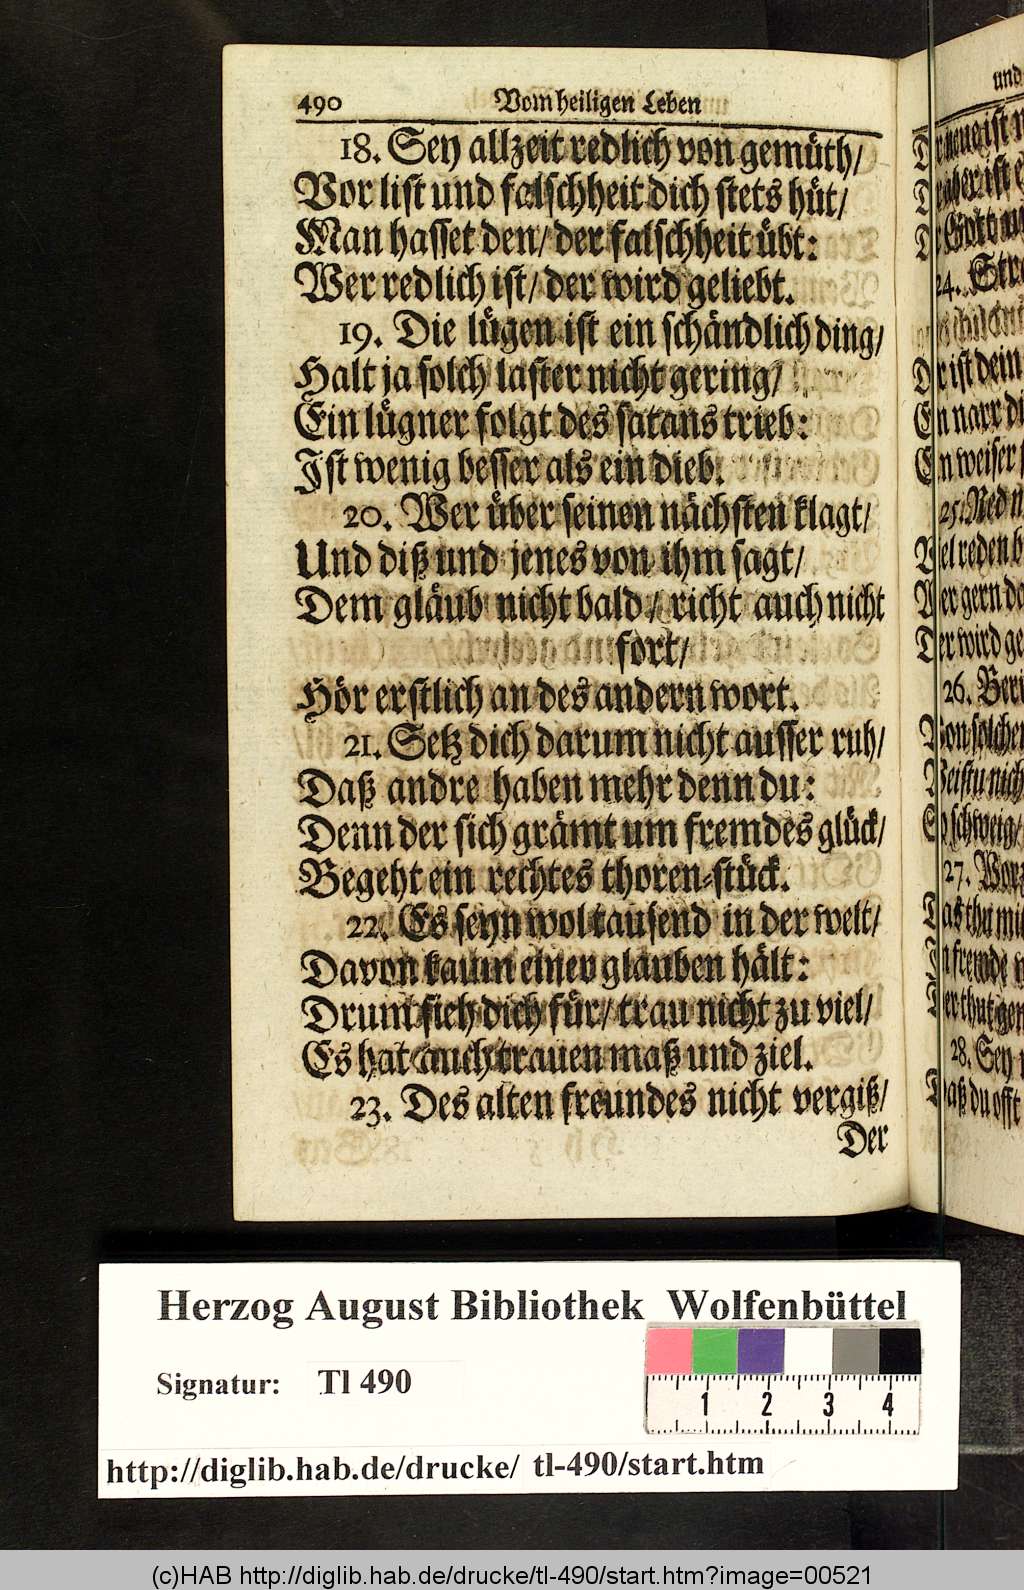 490 Vom heiligen Leben
18. Sey allzeit redlich von gemüth/
Vor list und falschheit dich stets hüt/
Man hasset den/ der falschheit übt:
Wer redlich ist/ der wird geliebt.
19. Die lügen ist ein schändlich ding/
Halt ja solch laster nicht gering/
Ein lügner folgt des satans trieb:
Ist wenig besser als ein dieb.
20. Wer über seinen nächsten klagt/
Und diß und jenes von ihm sagt/
Dem gläub nicht bald/ richt auch nicht
fort/
Hör erstlich an des andern wort.
21. Setz dich darum nicht ausser ruh/
Daß andre haben mehr denn du:
Denn der sich grämt um fremdes glück/
Begeht ein rechtes thoren-stück.
22. Es seyn wol tausend in der welt/
Davon kaum einer glauben hält:
Drum sieh dich für/ trau nicht zu viel/
Es hat auch trauen maß und ziel.
23. Des alten freundes nicht vergiß/
Der
und
24. Stra
25. Red n
26. Beri
27. Vorz
28. Sey
Herzog August Bibliothek Wolfenbüttel
Signatur: Tl 490
1 2 3 4
http://diglib.hab.de/drucke/ tl-490/start.htm
(c)HAB http://diglib.hab.de/drucke/tl-490/start.htm?image=00521